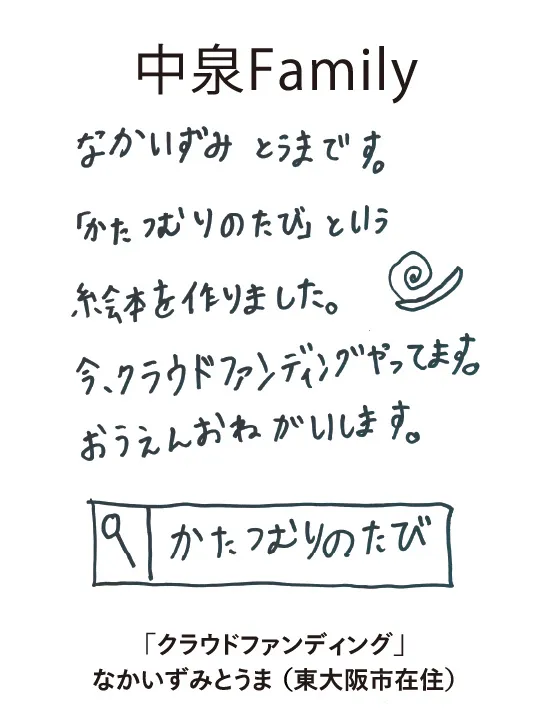 中泉Family
なかいずみ とうまです。
「かたつむりのたび」という
絵本を作りました。
今、クラウドファンディングやってます。
おうえんおねがいします。
かたつむりのたび
「クラウドファンディング」
なかいずみとうま（東大阪市在住）